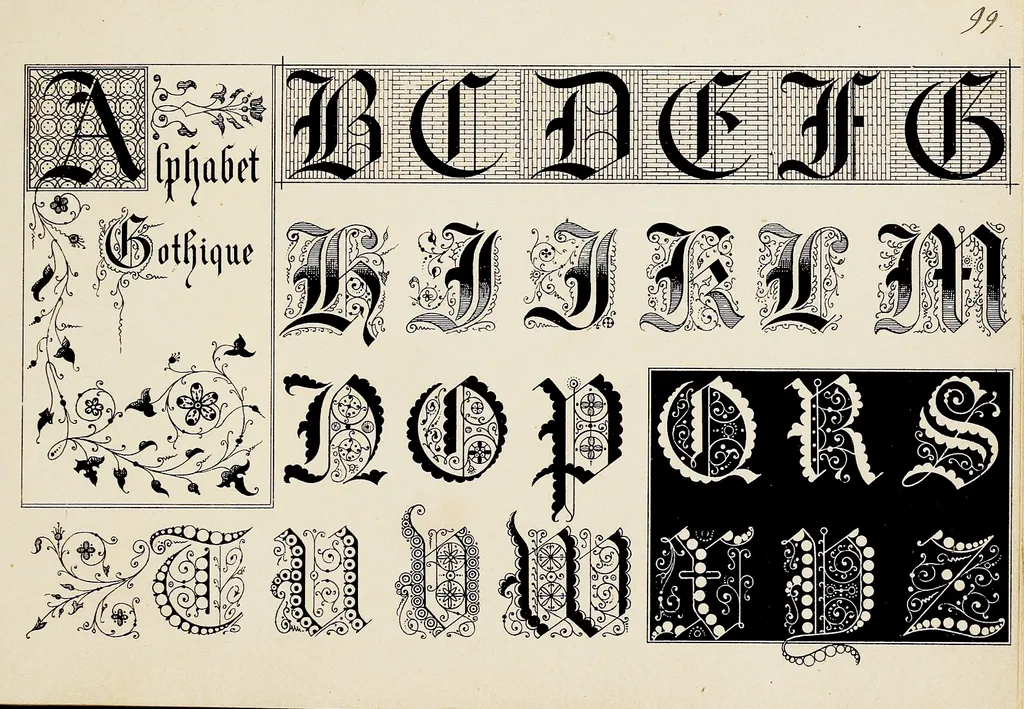 99.
Alphabet
Gothique
B C D E F G
H I J K L M
N O P Q R S
T U V W X Y Z